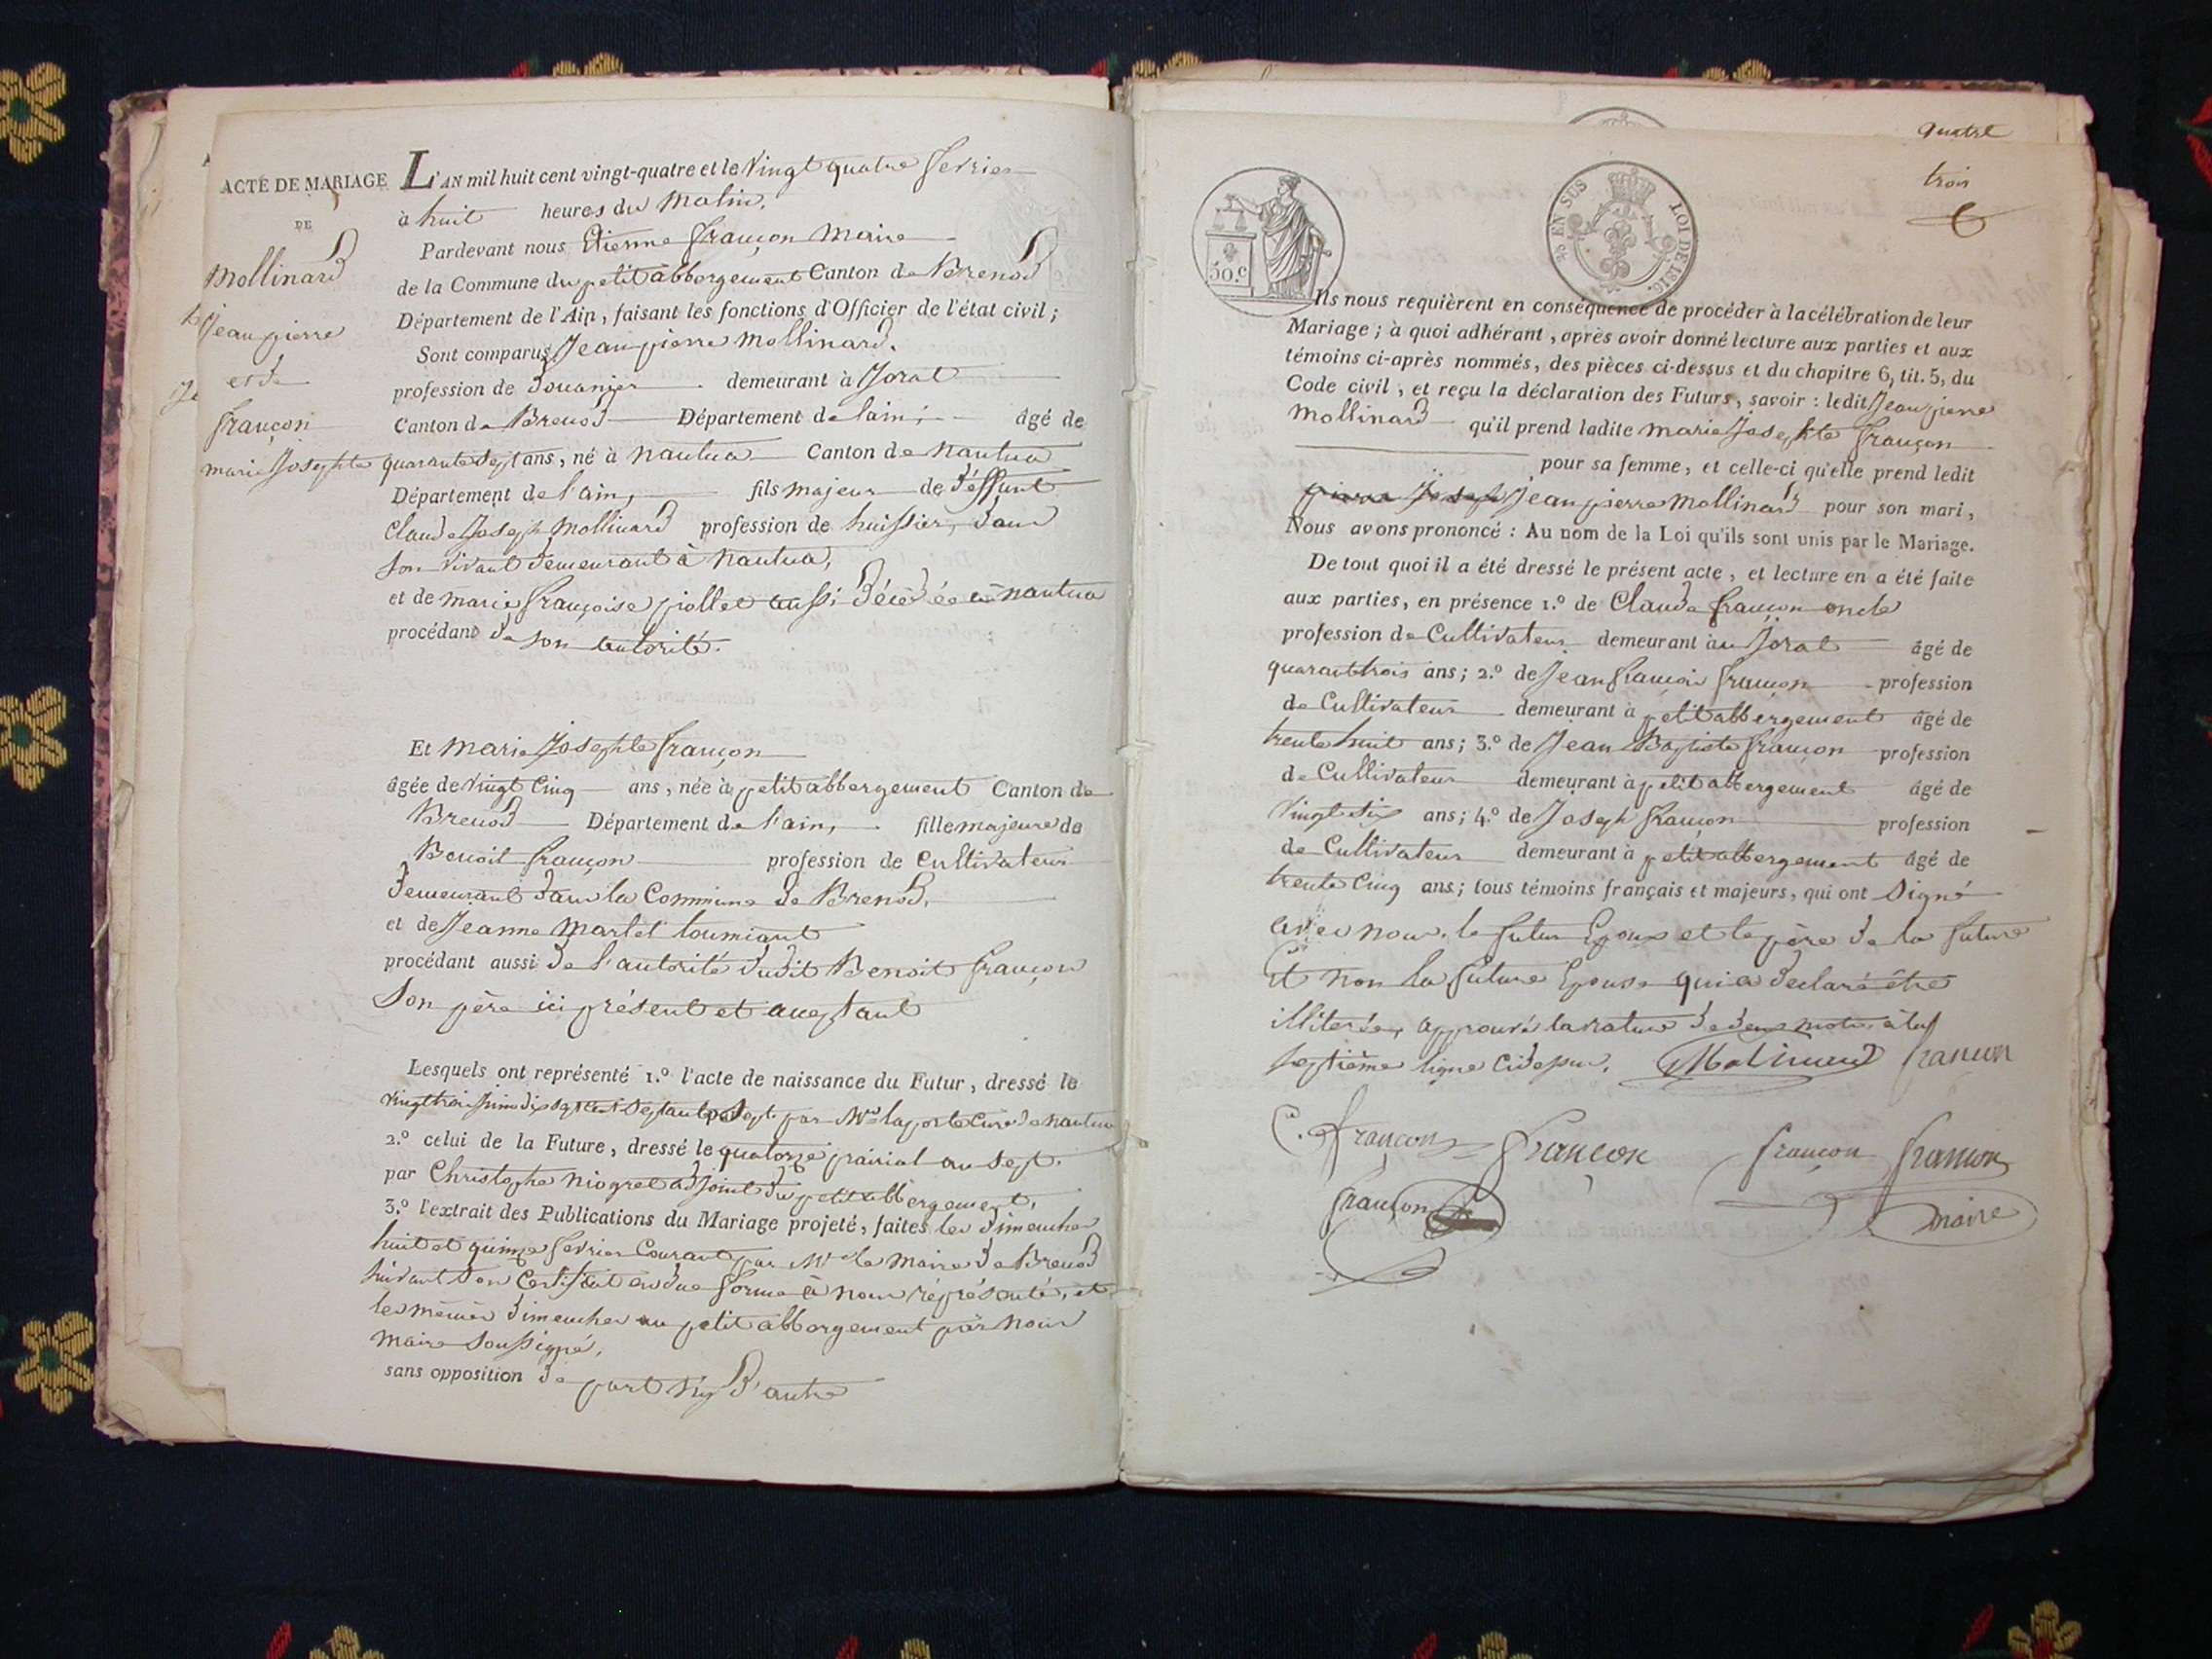 ACTE DE MARIAGE
DE
Mollinard
Jean pierre
et de
françon
marie Josephte
L'AN mil huit cent vingt-quatre et le vingt quatre fevrier
à huit heures du matin.
Pardevant nous Etienne françon Maire
de la Commune du petit abbergement Canton de Brenod
Département de l'Ain, faisant les fonctions d'Officier de l'état civil;
Sont comparus Jean pierre Mollinard.
profession de douanier demeurant à Joral
Canton de Brenod Département de lain; âgé de
quarante sept ans, né à nantua Canton de nantua
Département de l'ain, fils majeur de deffunt
Claude Joseph Mollinard profession de huissier, dans
son vivant demeurant à nantua,
et de marie françoise piollet aussi décédée à nantua
procédant de son autorité.
Et marie Josephte françon
âgée de vingt Cinq ans, née à petit abbergement Canton de
Brenod Département de l'ain, fille majeure de
Benoit françon profession de Cultivateur
demeurant dans la Commune de Brenod,
et de Jeanne Martel tourniant
procédant aussi de l'autorité dudit Benoit françon
son père ici présent et aceptant
Lesquels ont représenté 1.º l'acte de naissance du Futur, dressé le
vingt trois dix sept cent septante sept par Mr laporte Curé de nantua
2.º celui de la Future, dressé le quatorze prairial an sept.
par Christophe niogret adjoint du petit abbergement,
3.º l'extrait des Publications du Mariage projeté, faites les dimenches
huit et quinze fevrier Courant par Mr le Maire de Brenod
suivant son Certificat en due forme à nous réprésenté, et
les mêmes dimenches au petit abbergement par nous
maire soussigné,
sans opposition de part ny d'autre
quatre
trois
50.C
EN SUS
LOI DE 1816.
Ils nous requièrent en conséquence de procéder à la célébration de leur
Mariage; à quoi adhérant, après avoir donné lecture aux parties et aux
témoins ci-après nommés, des pièces ci-dessus et du chapitre 6, tit. 5, du
Code civil, et reçu la déclaration des Futurs, savoir : ledit Jean pierre
Mollinard qu'il prend ladite marie Josephte françon
pour sa femme, et celle-ci qu'elle prend ledit
pierre Joseph Jean pierre Mollinard pour son mari,
Nous avons prononcé : Au nom de la Loi qu'ils sont unis par le Mariage.
De tout quoi il a été dressé le présent acte, et lecture en a été faite
aux parties, en présence 1.º de Claude françon oncle
profession de Cultivateur demeurant au Joral âgé de
quarante trois ans; 2.º de Jean françois françon profession
de Cultivateur demeurant à petit abbergement âgé de
trente huit ans; 3.º de Jean Baptiste françon profession
de Cultivateur demeurant à petit abbergement âgé de
vingt six ans; 4.º de Joseph françon profession
de Cultivateur demeurant à petit abbergement âgé de
trente Cinq ans; tous témoins français et majeurs, qui ont signé
avec nous. le futur Epoux et le père de la future
Et non la future Epouse qui a declaré être
illiterée, approuvé la rature de deux mots à la
septième ligne cidessus. Molinard françon
C. françon françon françon françon
françon maire